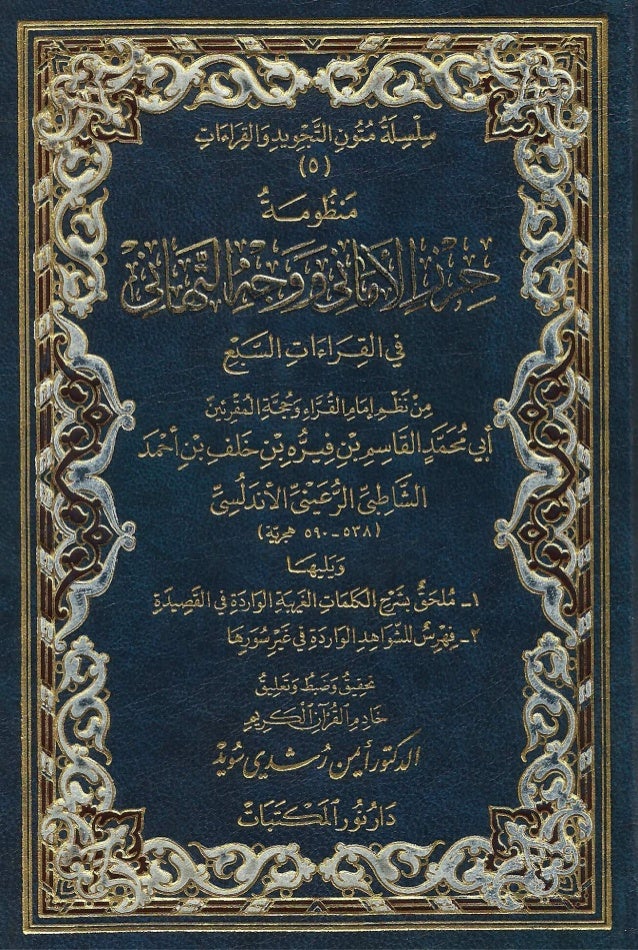 سِلْسِلَةُ مُتُونِ التَّجْوِيدِ وَالقِرَاءَاتِ
(٥)
مَنْظُومَةُ
حِرْزِ الأَمَانِي وَوَجْهِ التَّهَانِي
فِي القِرَاءَاتِ السَّبْعِ
مِنْ نَظْمِ إِمَامِ القُرَّاءِ وَحُجَّةِ المُقْرِئِينَ
أَبِي مُحَمَّدٍ القَاسِمِ بْنِ فِيرُّهِ بْنِ خَلَفِ بْنِ أَحْمَدَ
الشَّاطِبِيِّ الرُّعَيْنِيِّ الأَنْدَلُسِيِّ
(٥٣٨ - ٥٩٠ هجريّة)
وَيَلِيهَا
١- مُلْحَقٌ بِشَرْحِ الكَلِمَاتِ الغَرِيبَةِ الوَارِدَةِ فِي القَصِيدَةِ
٢- فِهْرِسٌ لِلشَّوَاهِدِ الوَارِدَةِ فِي غَيْرِ سُوَرِهَا
تَحْقِيقُ وَضَبْطُ وَتَعْلِيقُ
خَادِمِ القُرْآنِ الْكَرِيمِ
الدكتور أيمن رُشدي سُوَيْد
دَارُ نُورِ المَكْتَبَاتِ